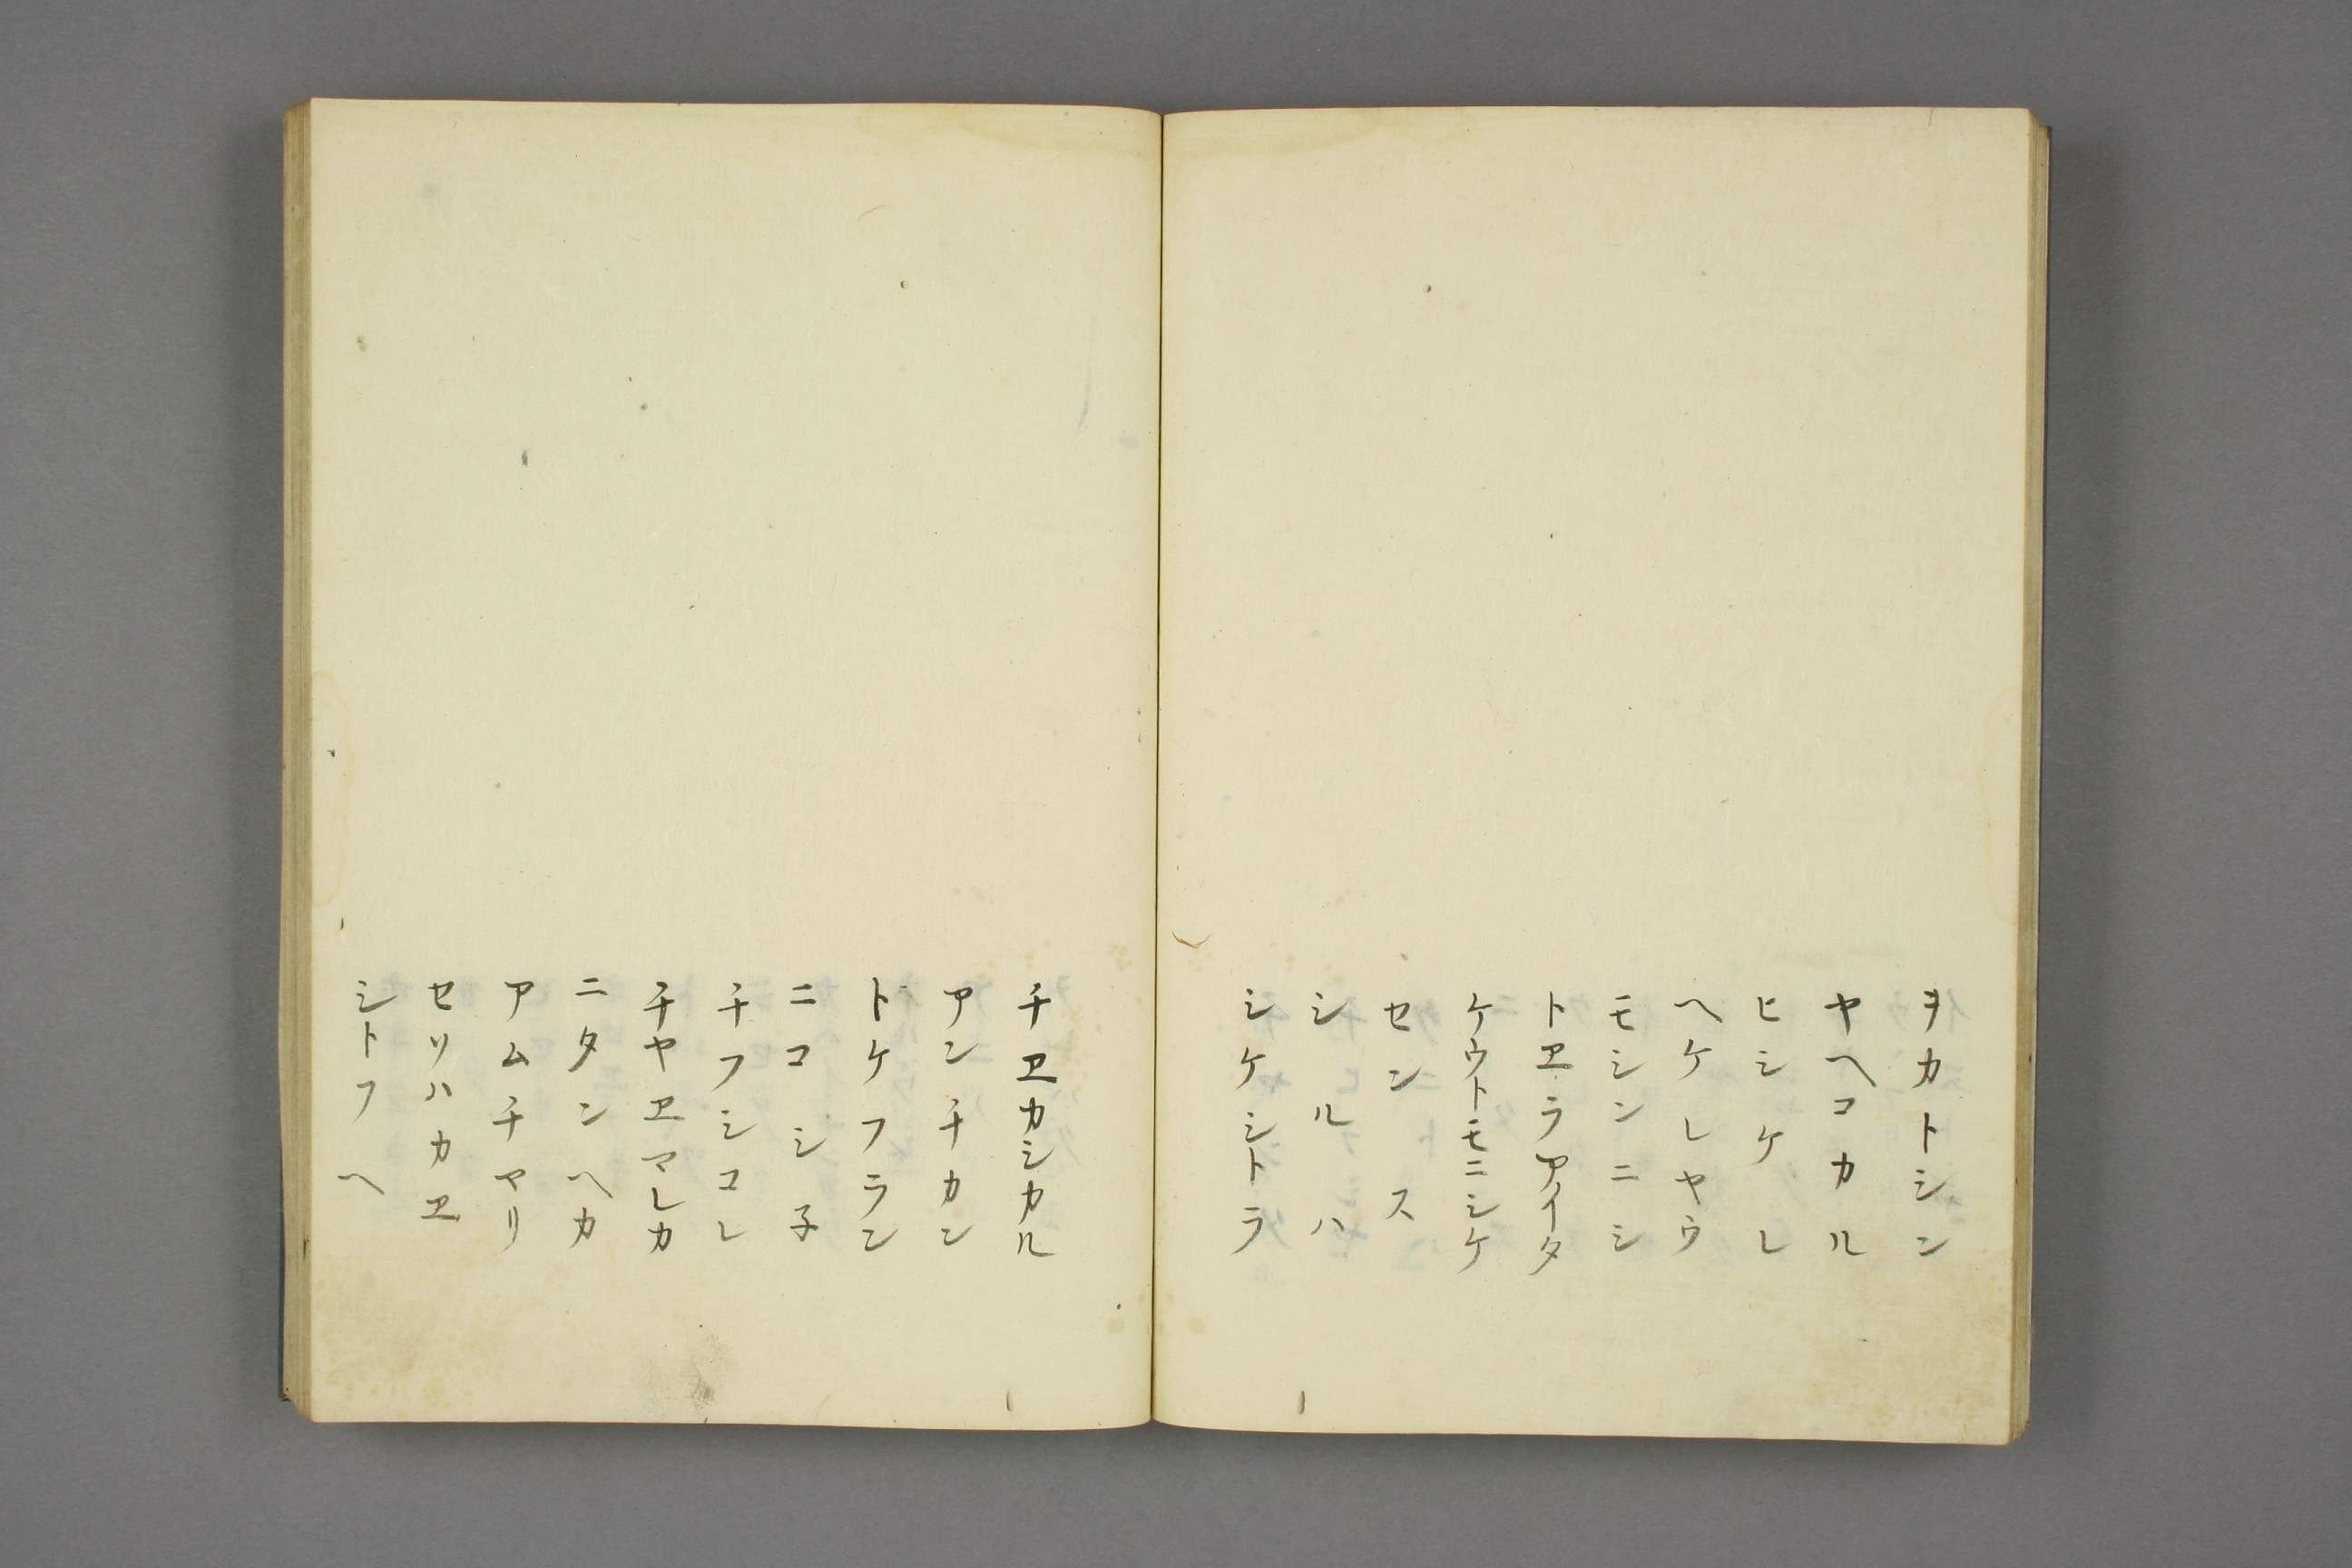 ヲカトシン
ヤヘコカル
ヒシケレ
ヘケレヤウ
モシンニシ
トヱラアイタ
ケウトモニシケ
センス
シルハ
シケシトラ
チヱカシカル
アンチカン
トケフラン
ニコシ子
チフシコレ
チヤヱマレカ
ニタンヘカ
アムチヤリ
セリハカヱ
シトフヘ